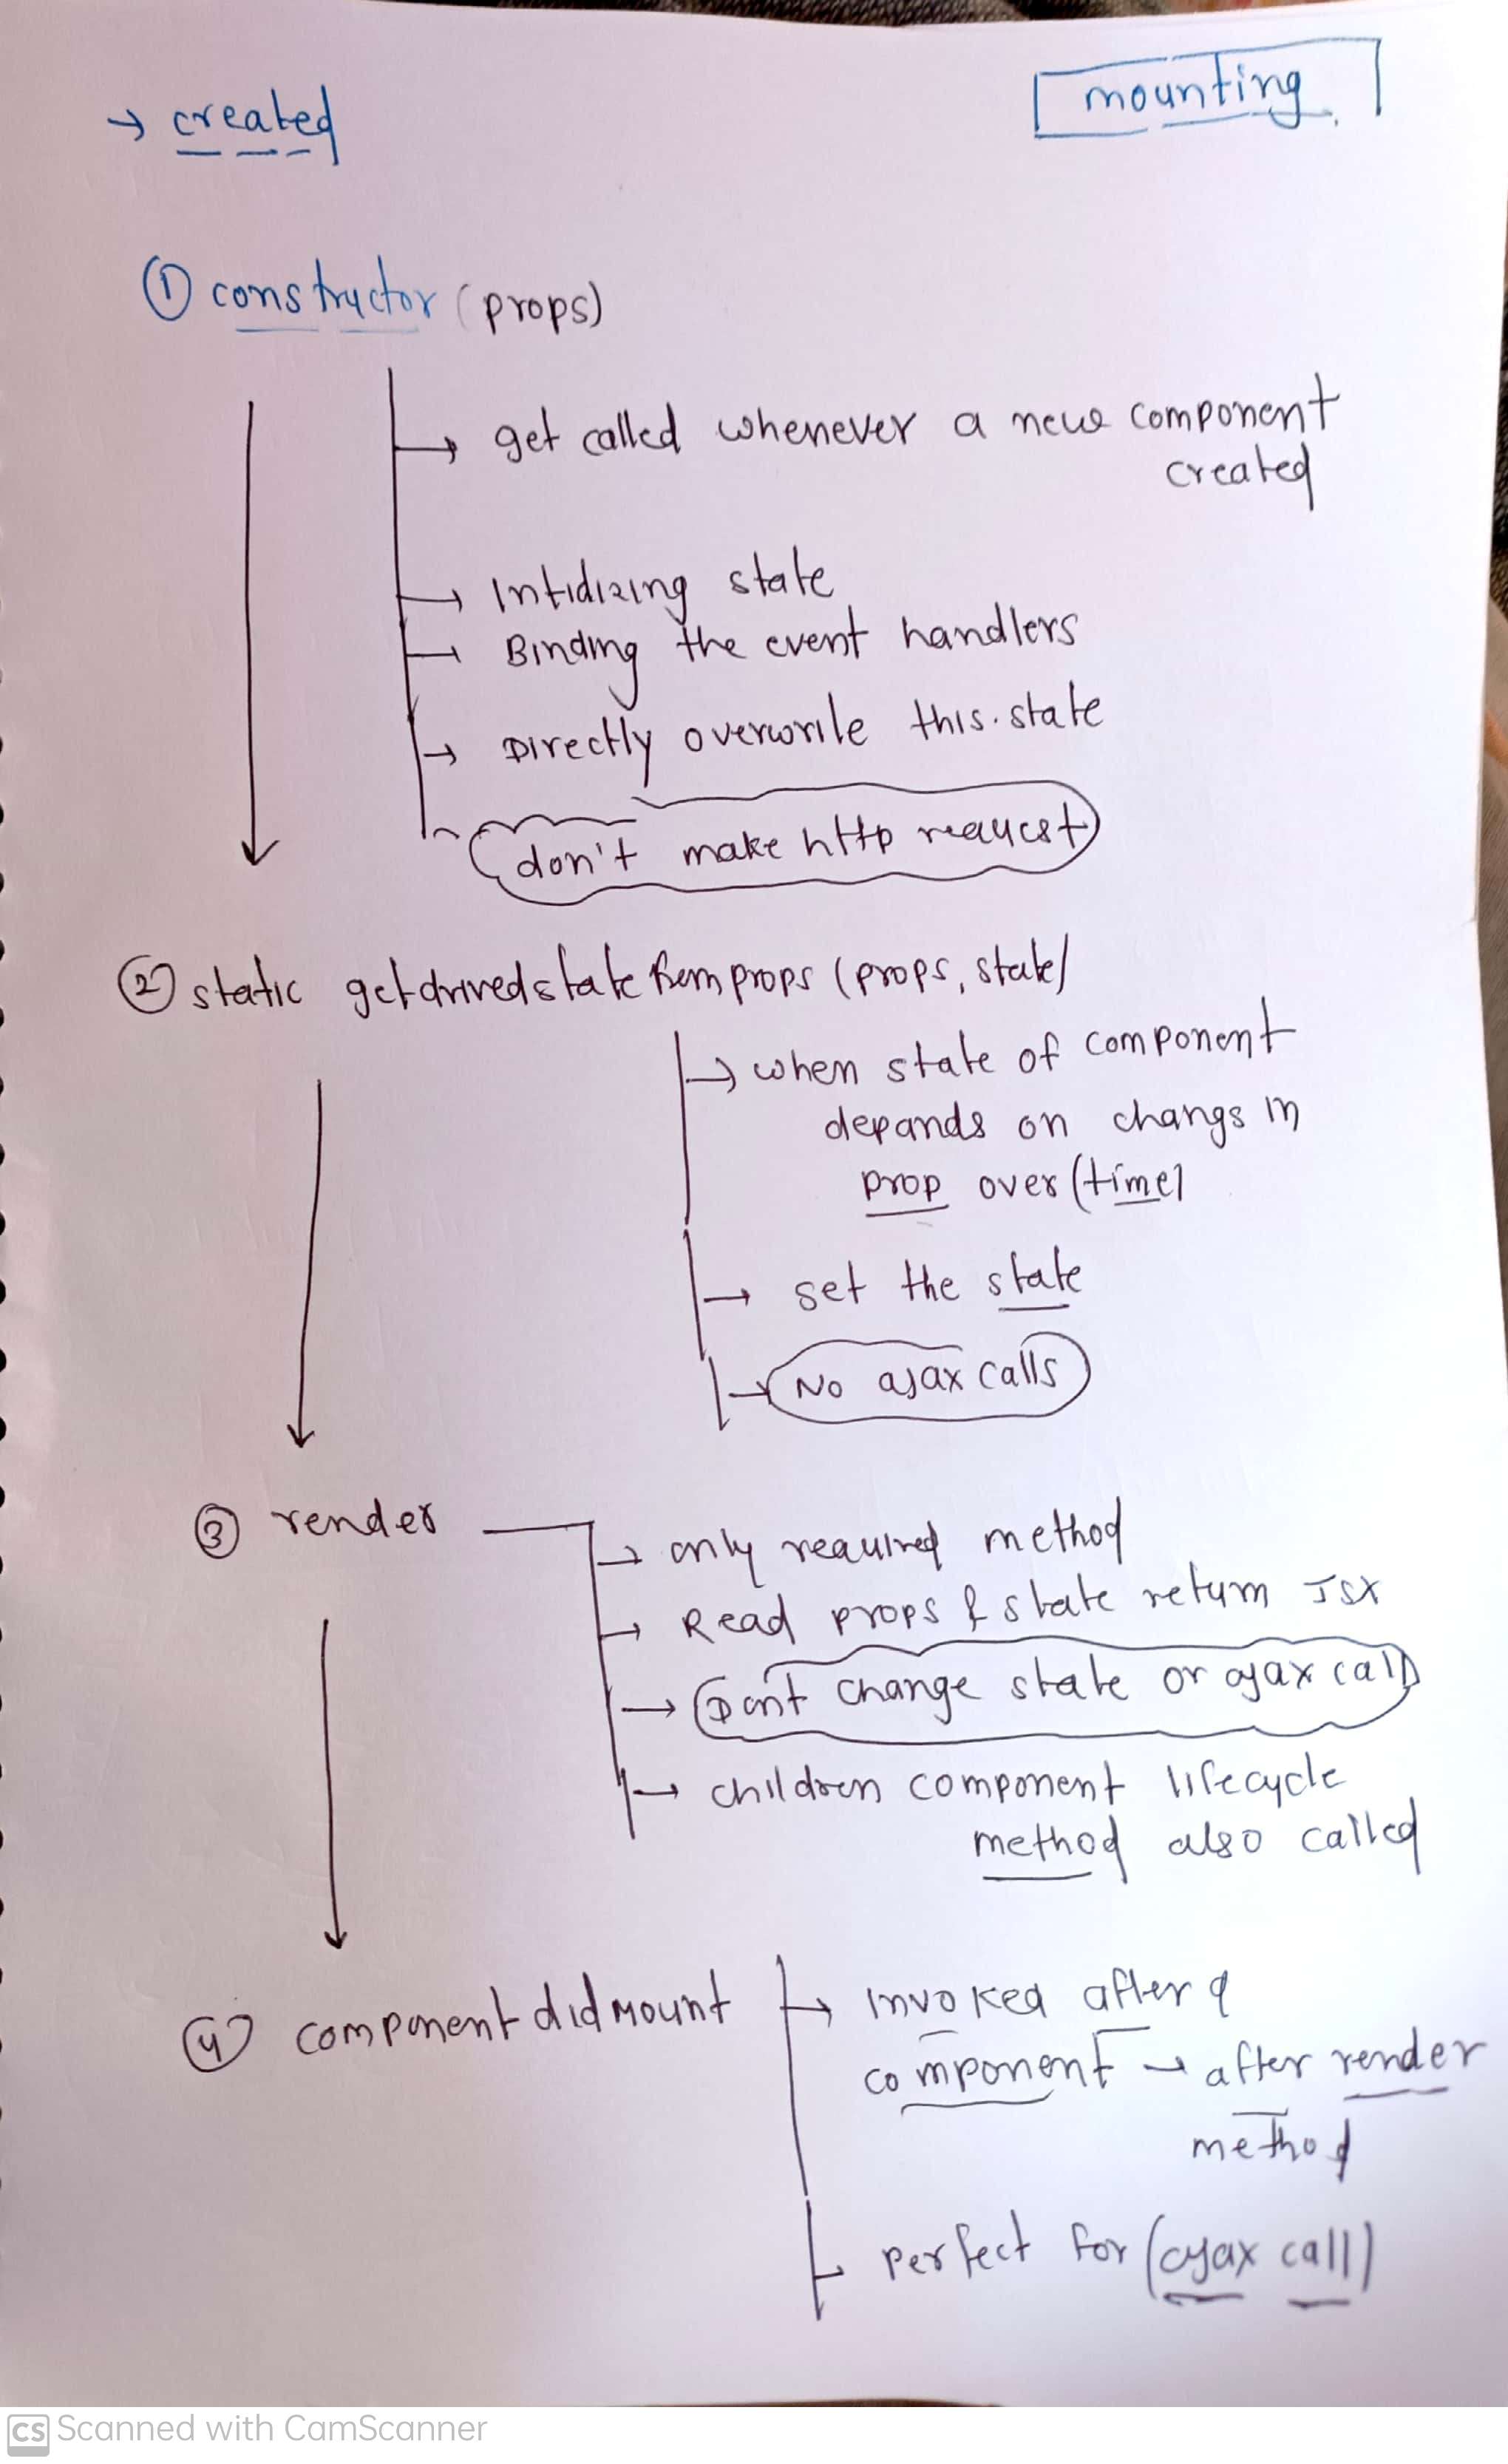 → created
mounting
① constructor (props)
→ get called whenever a new component
created
→ Intidizing state
Binding the event handlers
→ Directly overwrile this.state
don't make http request
② static getdrivedstate from props (props, state)
→ when state of component
depands on changs in
prop over (time)
→ set the state
→ No ajax calls
③ render
→ only required method
→ Read props & state return JSX
→ Dont change state or ajax call
→ children component lifecycle
method also called
④ component didMount
→ invoked after q
component → after render
method
perfect for (ajax call)
CS Scanned with CamScanner